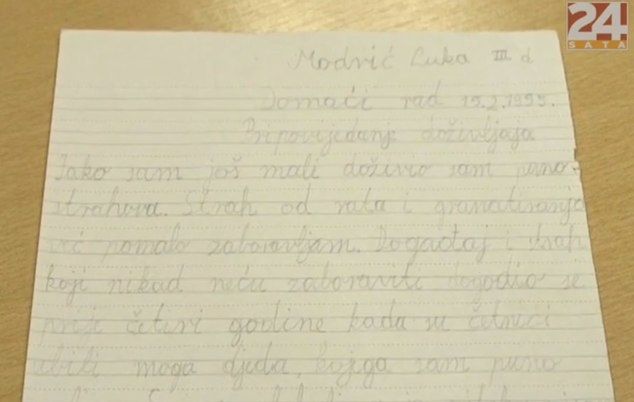 24
SATA
Modrić Luka III d
Domaći rad 15.2.1995.
Pripovijedanje doživljaja
Iako sam još mali doživio sam puno
strahova. Strah od rata i granatiranja
već pomalo zaboravljam. Događaj i strah
koji nikad neću zaboraviti dogodio se
prije četiri godine kada su četnici
ubili moga djeda, kojega sam puno